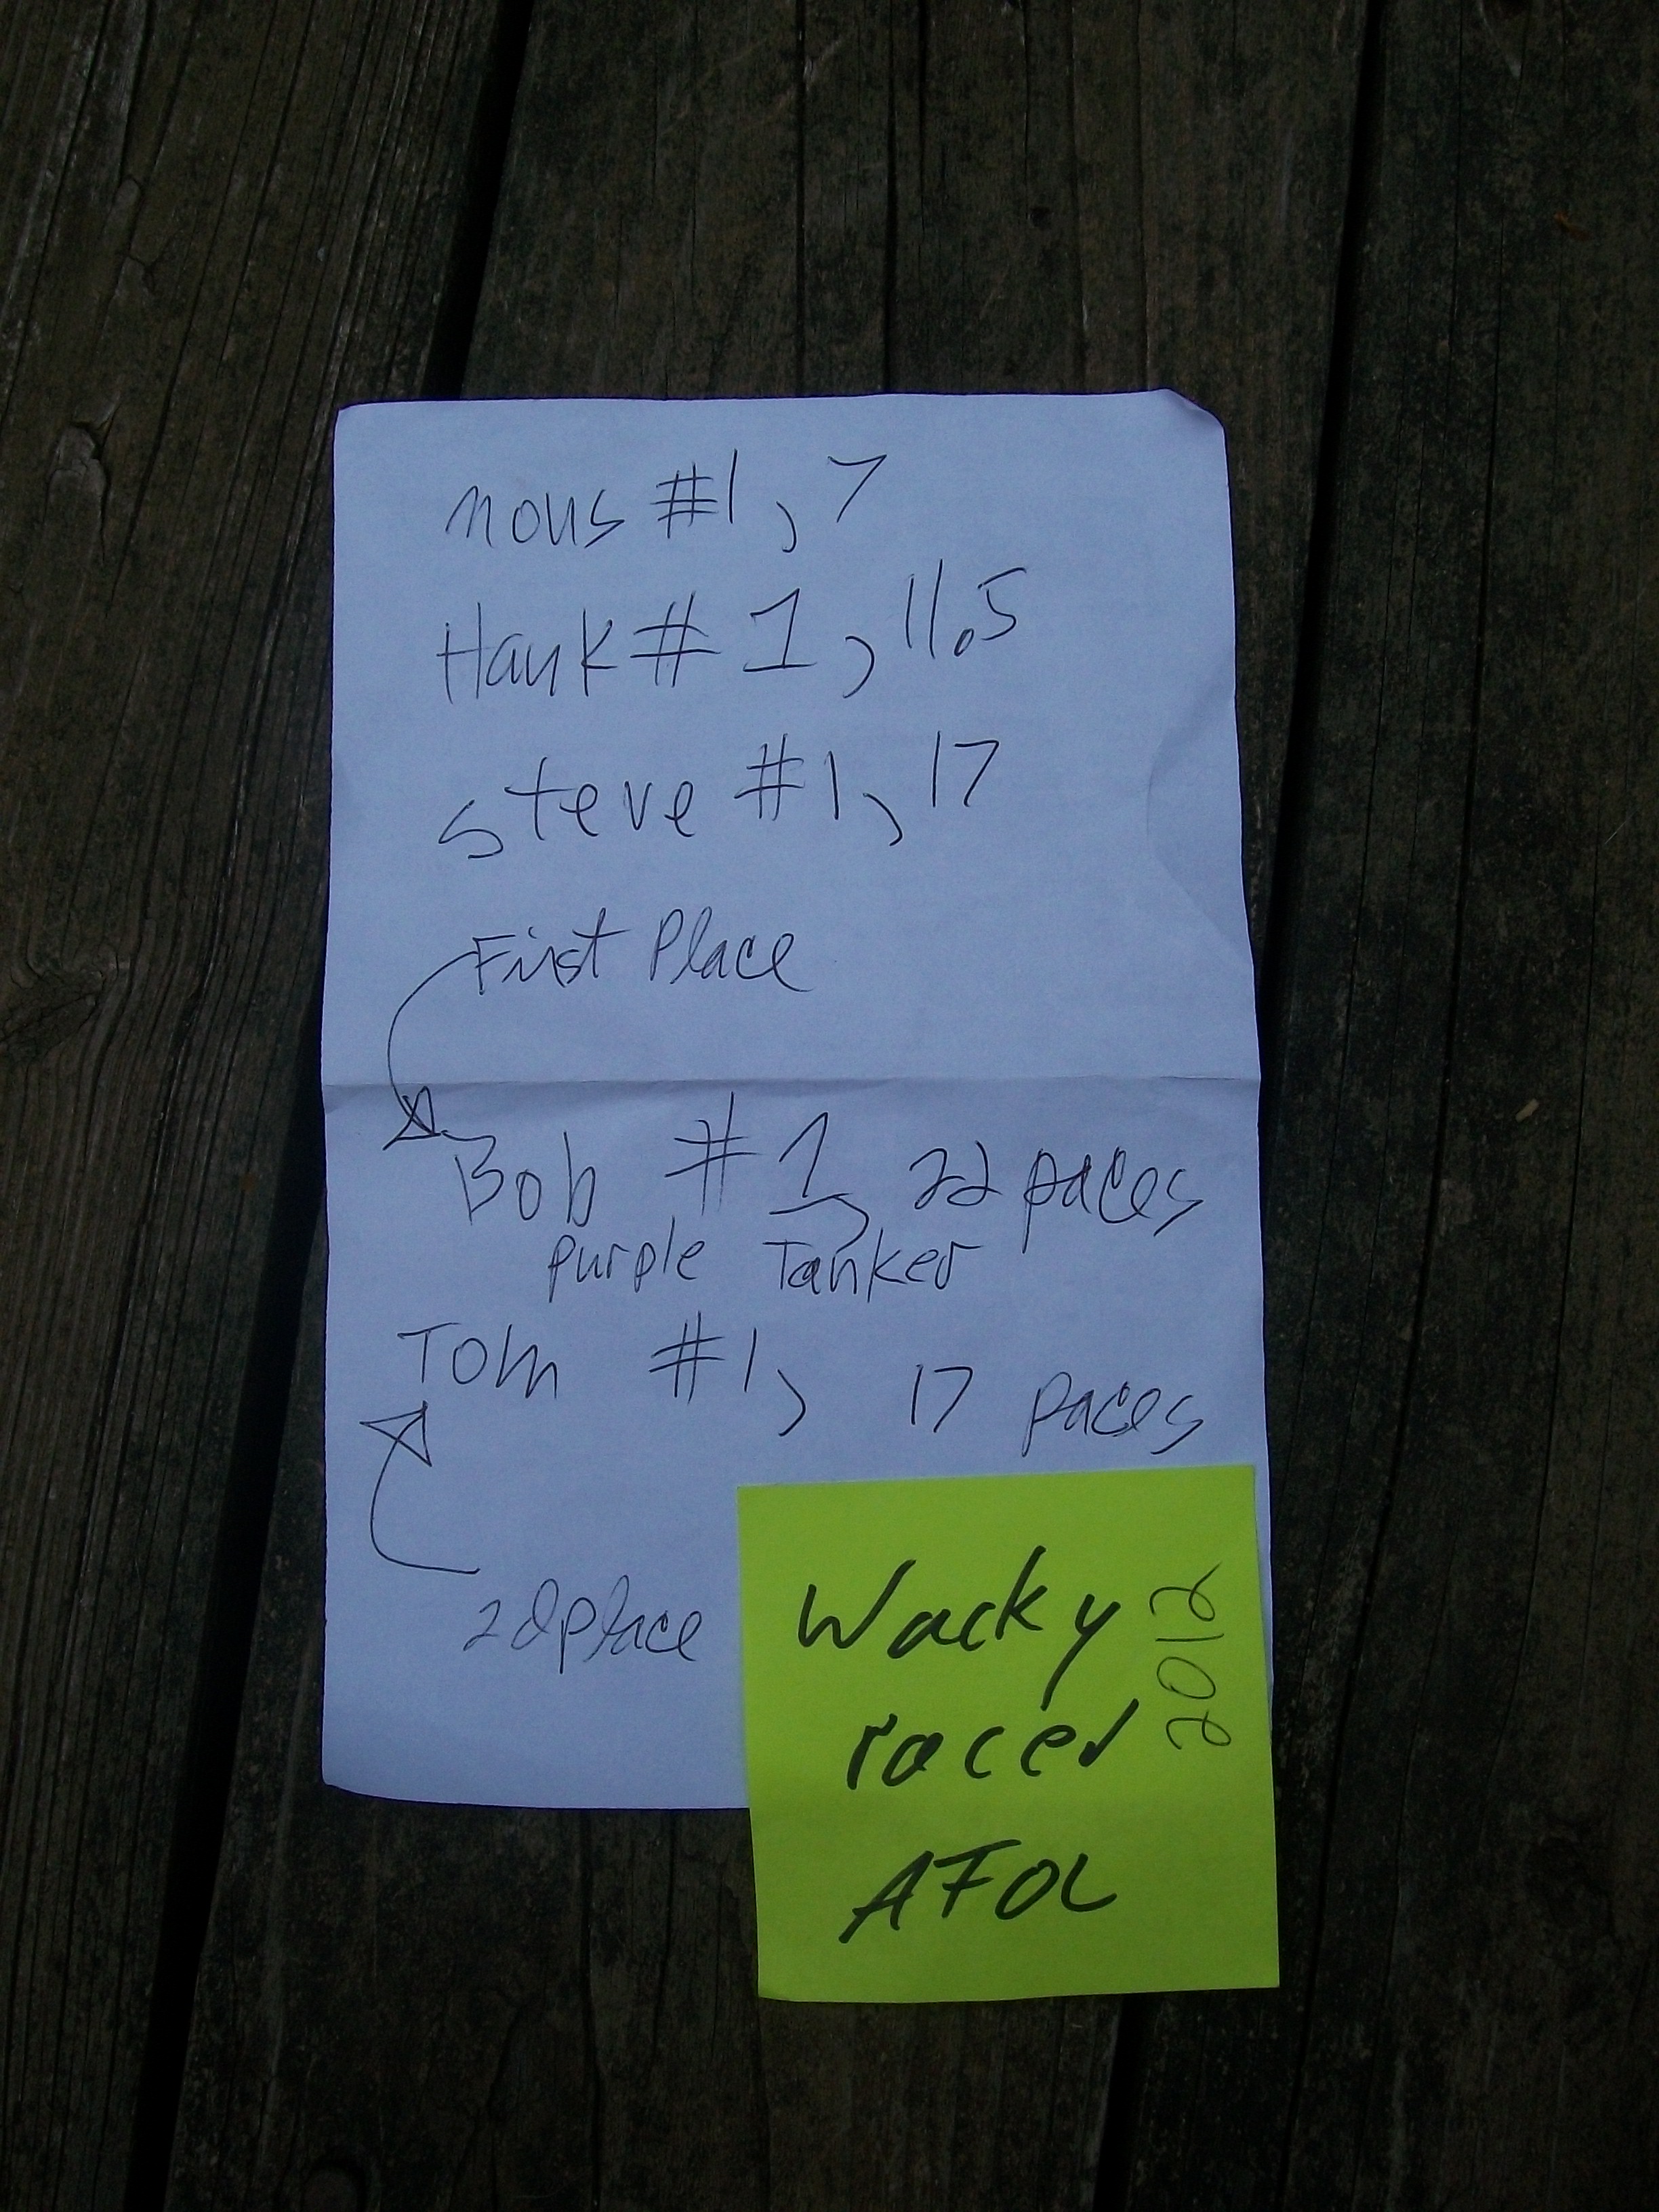 nous #1, 7
Hank # 1, 11.5
Steve #1, 17
First Place
Bob # 1, 22 paces
purple Tanker
Tom #1, 17 paces
2d place
Wacky
racer
AFOL
2012